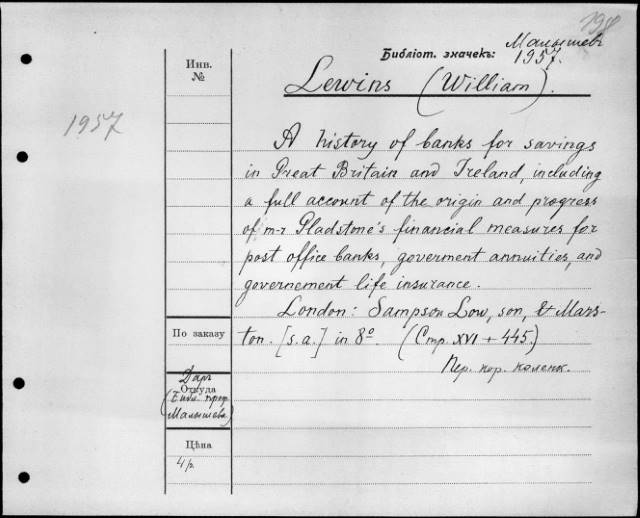 198
Библіот. значекъ: Малышевъ
1957.
Инв.
№
Lewins (William).
1957
A history of banks for savings
in Great Britain and Ireland, including
a full account of the origin and progress
of m-r Gladstone's financial measures for
post office banks, goverment annuities, and
governement life insurance.
London: Sampson Low, son, & Mars-
ton. [s.a.] in 8º. (Стр. XVI + 445.)
Пер. кор. коленк.
По заказу
Даръ
Откуда
(Библ. проф.
Малышева)
Цѣна
4 р.